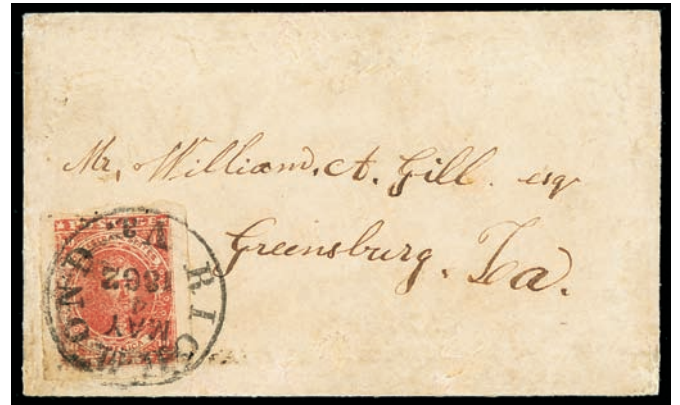 Mr. William. A. Gill. esqr
Greensburg. La.
RICHMOND
Va.
MAY
1862